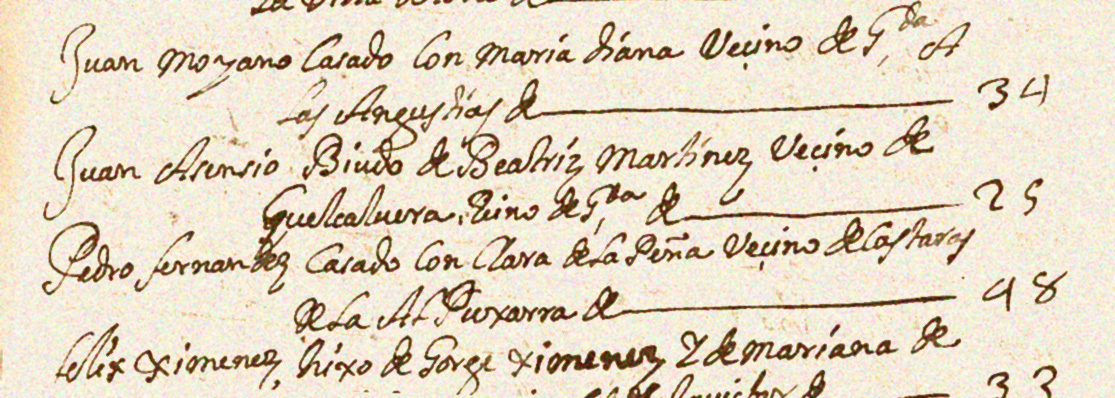 Juan Moyano Casado Con Maria diana Vecino de G.da A
Las Angustias de 34
Juan Asensio Biudo de Beatriz Martinez Vecino de
Guelcaluera Reino de G.da de 25
Pedro fernandez Casado Con Clara de La Peña Vecino de Castaras
de La Al Puxarra de 48
felix Ximenez, hixo de Gorge Ximenez Y de Mariana de
de 33